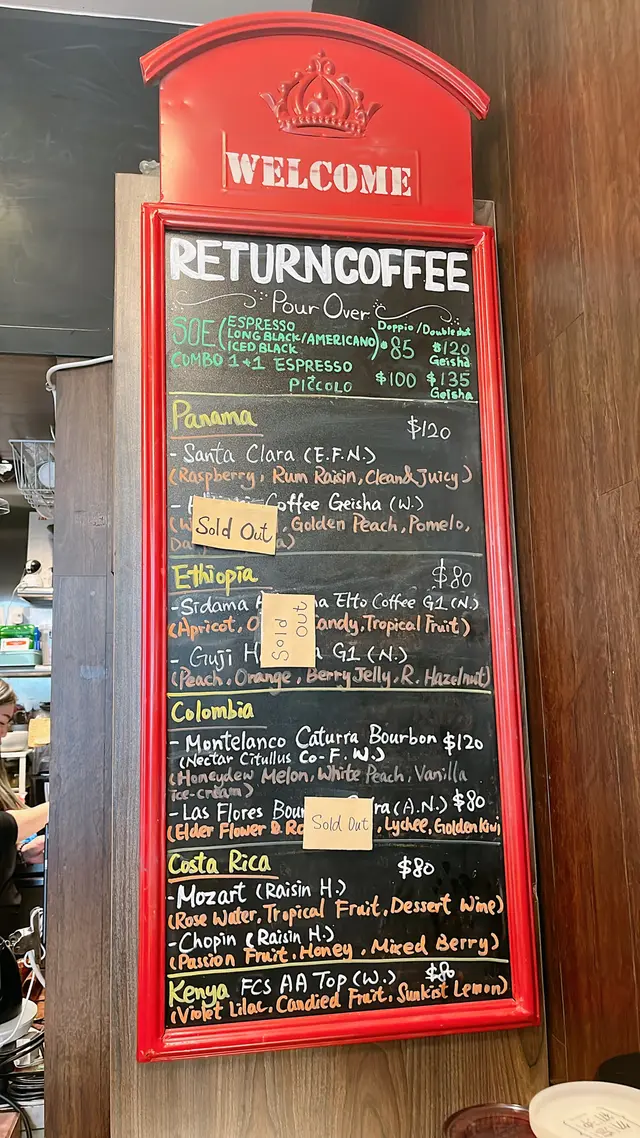 WELCOME
RETURN COFFEE
Pour Over
SOE (ESPRESSO
LONG BLACK/AMERICANO
ICED BLACK) $85
Doppio/Doubleshot
$120
Geisha
COMBO 1+1 ESPRESSO
PICCOLO $100 $135
Geisha
Panama $120
- Santa Clara (E.F.N.)
(Raspberry, Rum Raisin, Clean & Juicy)
- Coffee Geisha (W.)
Sold Out
, Golden Peach, Pomelo,
Ethiopia $80
- Sidama Elto Coffee G1 (N.)
(Apricot, Candy, Tropical Fruit)
Sold Out
- Guji G1 (N.)
(Peach, Orange, Berry Jelly, R. Hazelnut)
Colombia
- Montelanco Caturra Bourbon $120
(Nectar Citullus Co-F. W.)
(Honeydew Melon, White Peach, Vanilla
ice-cream)
- Las Flores (A.N.) $80
(Elder Flower & , Lychee, Golden Kiwi
Sold Out
Costa Rica $80
- Mozart (Raisin H.)
(Rose Water, Tropical Fruit, Dessert Wine)
- Chopin (Raisin H.)
(Passion Fruit, Honey, Mixed Berry)
Kenya FCS AA Top (W.) $80
(Violet Lilac, Candied Fruit, Sunkist Lemon)